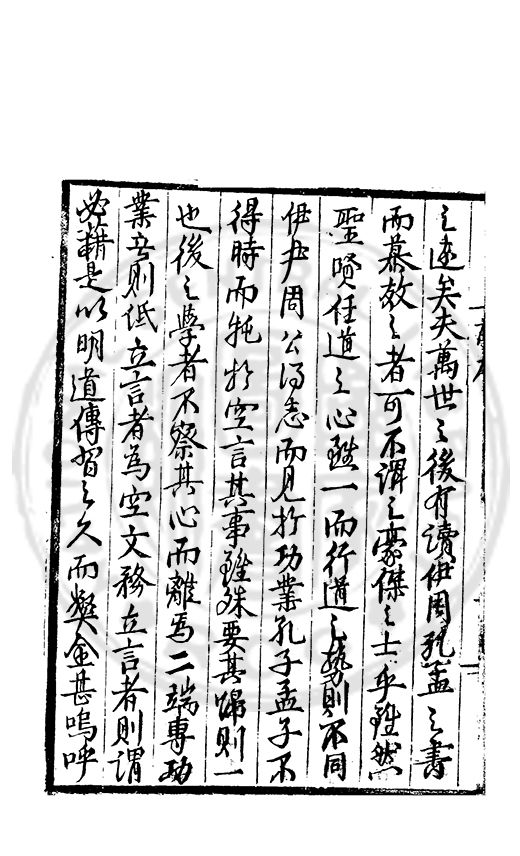 之述矣夫萬世之後有讀伊周孔孟之書
而慕效之者可不謂之豪傑之士乎雖然
聖賢任道之心雖一而行道之勢則不同
伊尹周公得志而見於功業孔子孟子不
得時而托於空言其事雖殊要其歸則一
也後之學者不察其心而離爲二端專功
業者則低立言者為空文務立言者則謂
必藉是以明道傳習之久而弊益甚嗚呼